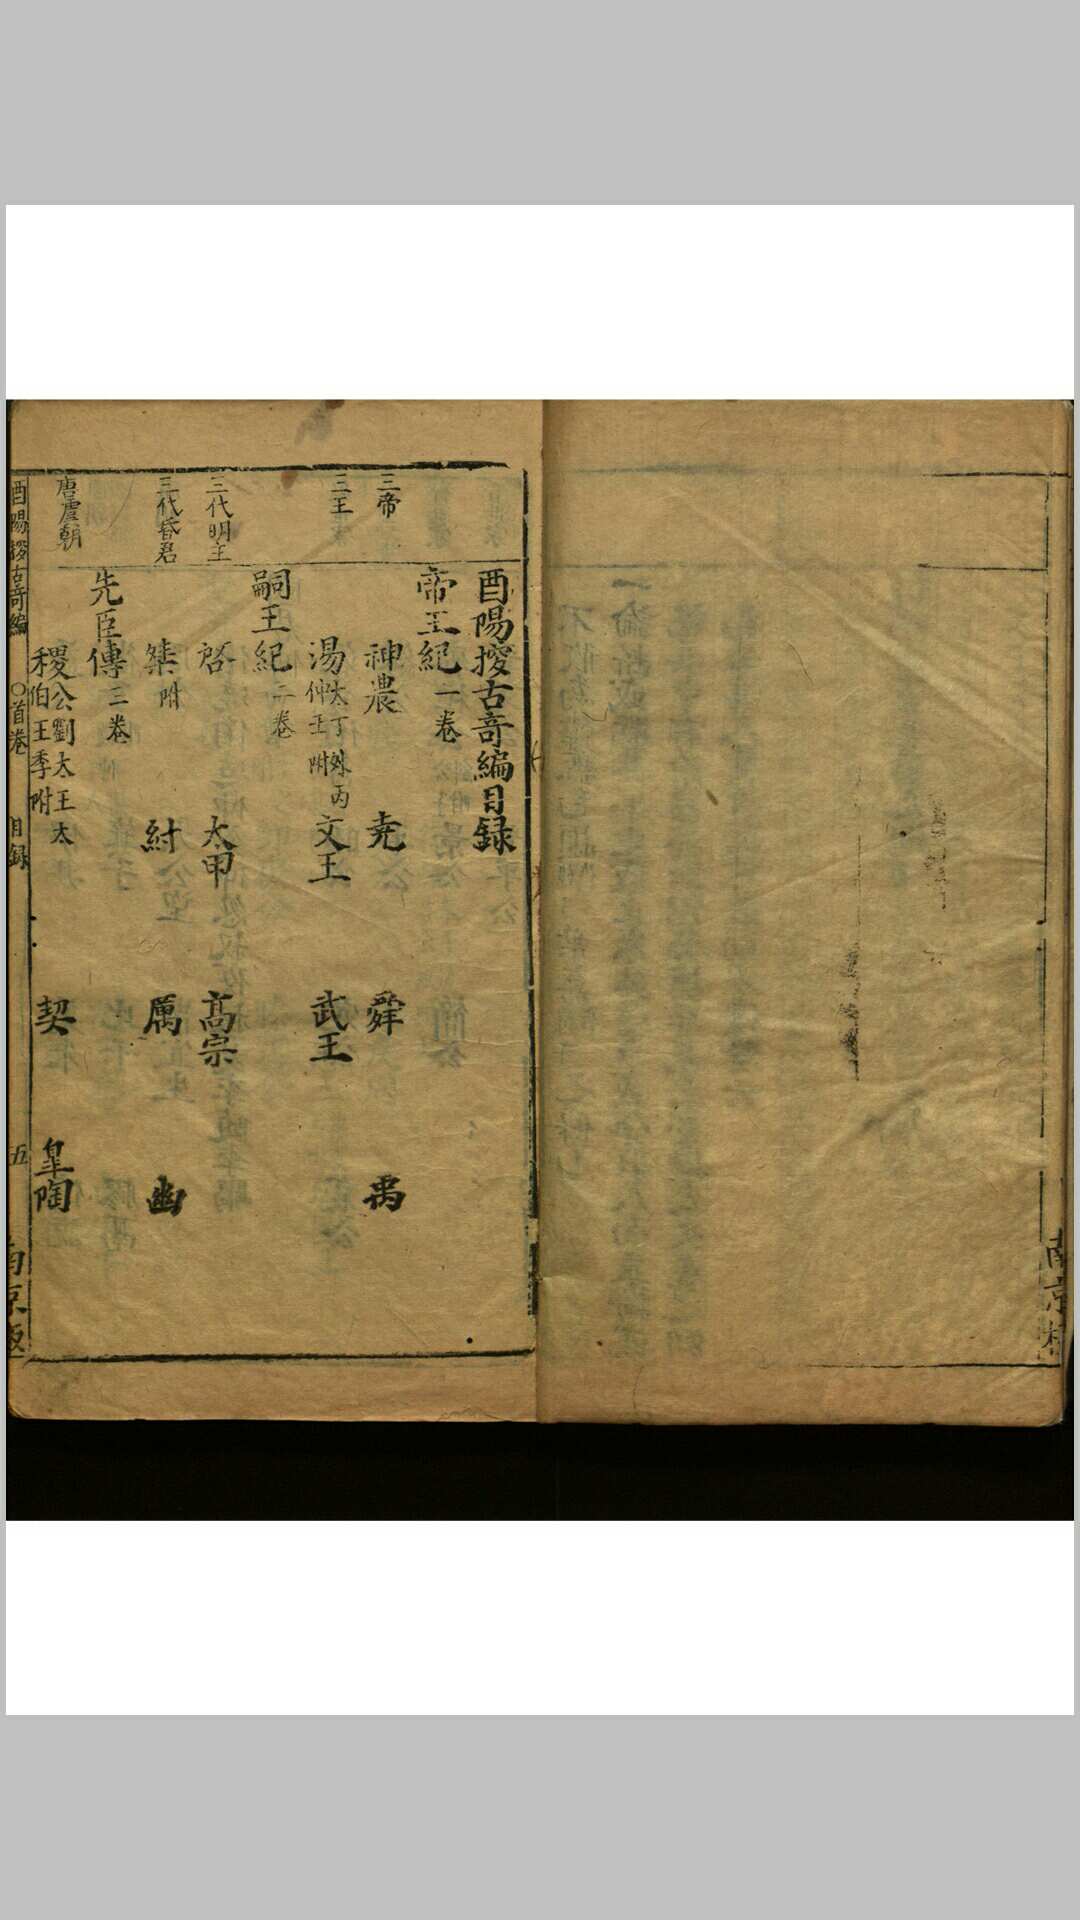 酉陽搜古奇編目録
帝王紀一卷
三帝
神農 堯 舜 禹
三王
湯太丁外丙仲壬附 文王 武王
嗣王紀二卷
三代明主
啓 太甲 高宗
三代昏君
桀附 紂 厲 幽
先臣傳三卷
唐虞朝
稷公劉太王太伯王季附 契 皐陶
酉陽搜古奇編 〇首卷 目録 五
南京板
南京